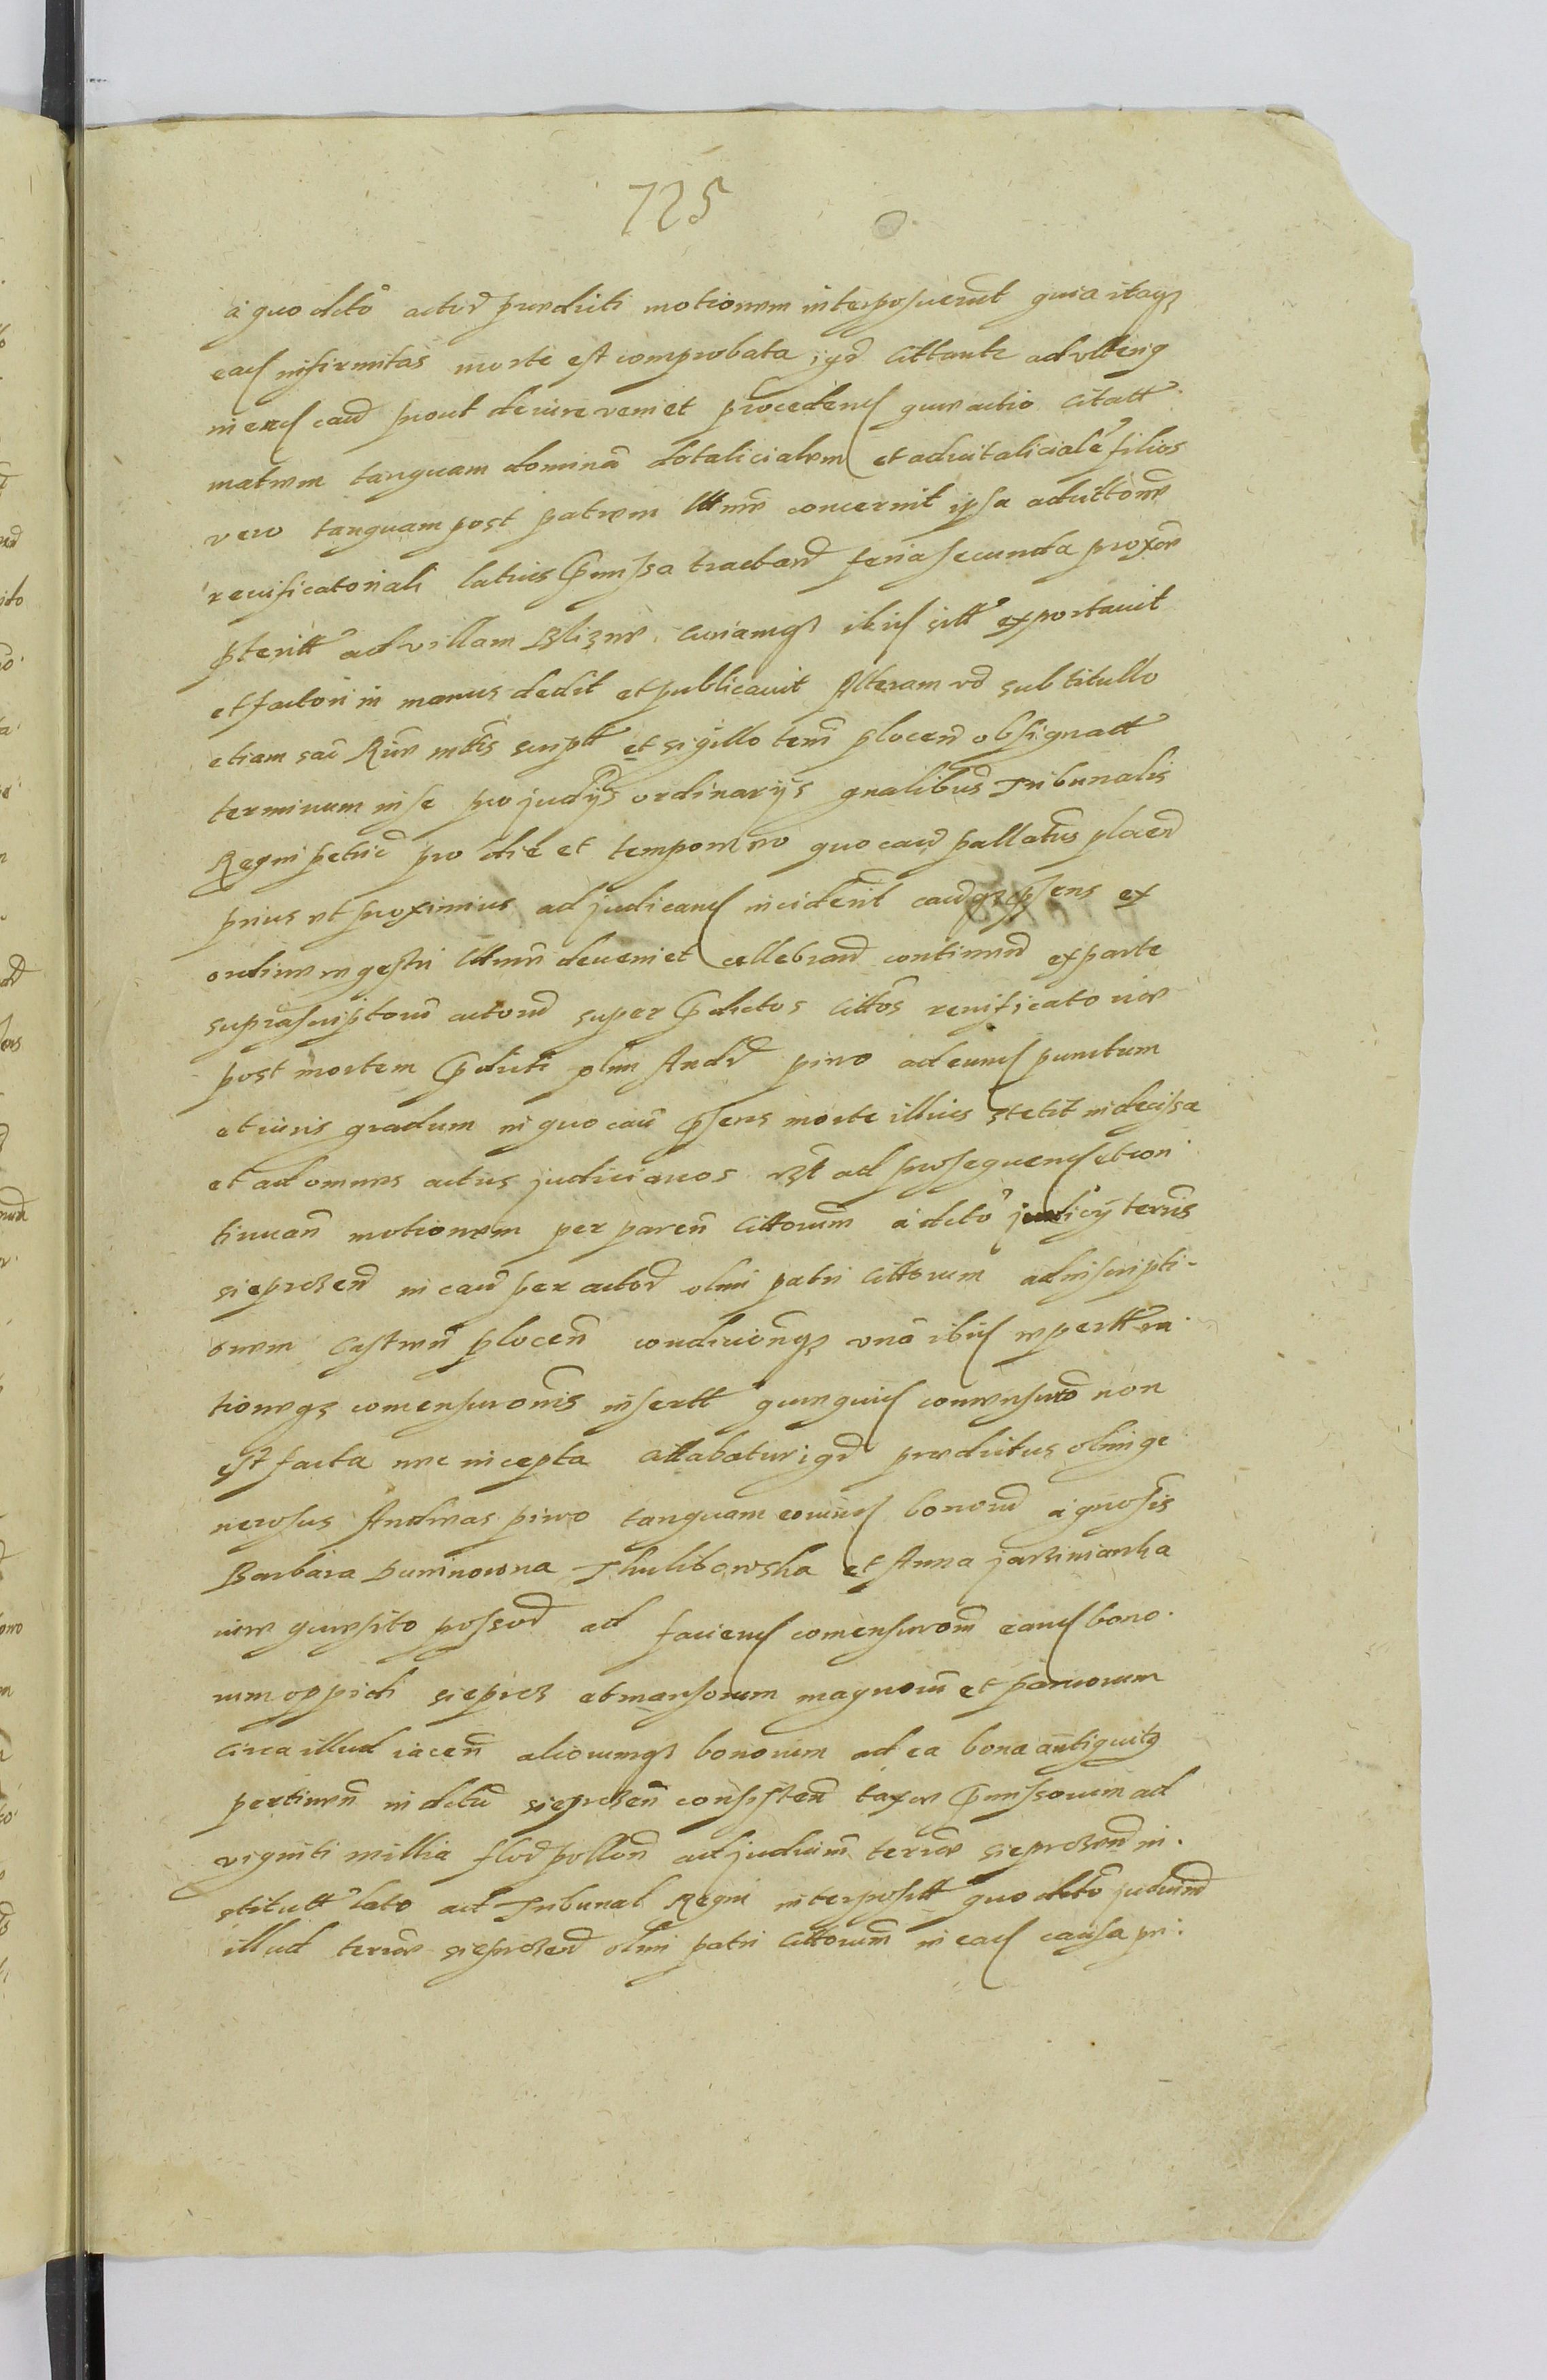 725
a quo dcto actor praedicti motionem interposuerunt quia itaq
ead infirmitas morte est comprobata igr Citant ad ulterig
in ead cau prout de iure veniet procedend quae actio Citatt
matrem tanquam dominā dotalicialem et aduitalicialē filios
vero tanquam post patrem lttmē concernit ipsa aductione
reuificatoriali latius pmissa tractand feria secunda proxime
pteritt ad villam Blizne curiamq ibid sitt exportauit
et factori in manus dedit et publicauit Alteram vo sub titullo
etiam sac Riae mttis script et sigillo terri plocen obsignatt
terminum in se pro judijs ordinarijs gnalibus Tribunalis
Regni petric pro die et tempore eo quo cau pallatus plocen
prius vt proximius ad judicand inciderit cau qz psens ex
ordine regestri lttme deueniet cellebrand continen ex parte
suprascriptoru actoru super pdictos Cittos reuificatoriae
post mortem pdicti olim Andr piwo ad eund punctum
et iuris gradum in quo cau psens morte illius stetit indecisa
et ad omnes actus judiciarios Est ad prosequend et con
tinuan motionem per paren Cittorum a dcto judicij terris
sieprcen in cau per actor olim patri Cittorum ad inscripti-
onem Castren plocen condicionq vna ibid repertt ra
tioneq comensuronis insertt quaequid comensuro non
est facta nec incepta Cittabatur igr praedictus olim ge
nerosus Andreas piwo tanquam eorund bonoru a gnosis
Barbara Duninowna Thulibowska et Anna jarzinianka
iure quaesito possor ad faciend comensuronem eand bono
rum oppidi sieprcz et mansorum magnoru et paruorum
circa illud iacen aliorumq bonorum ad ea bona antiquitg
pertinen in dctu sieprcen consisten taxae pmissorum ad
viginti millia flor pollon ad judicium terrae sieprcen in
stitutt lato ad Tribunal Regni interpositt quo dcto judiciu
illud terrae sieprcen olim patri Cittorum in ead causa pri